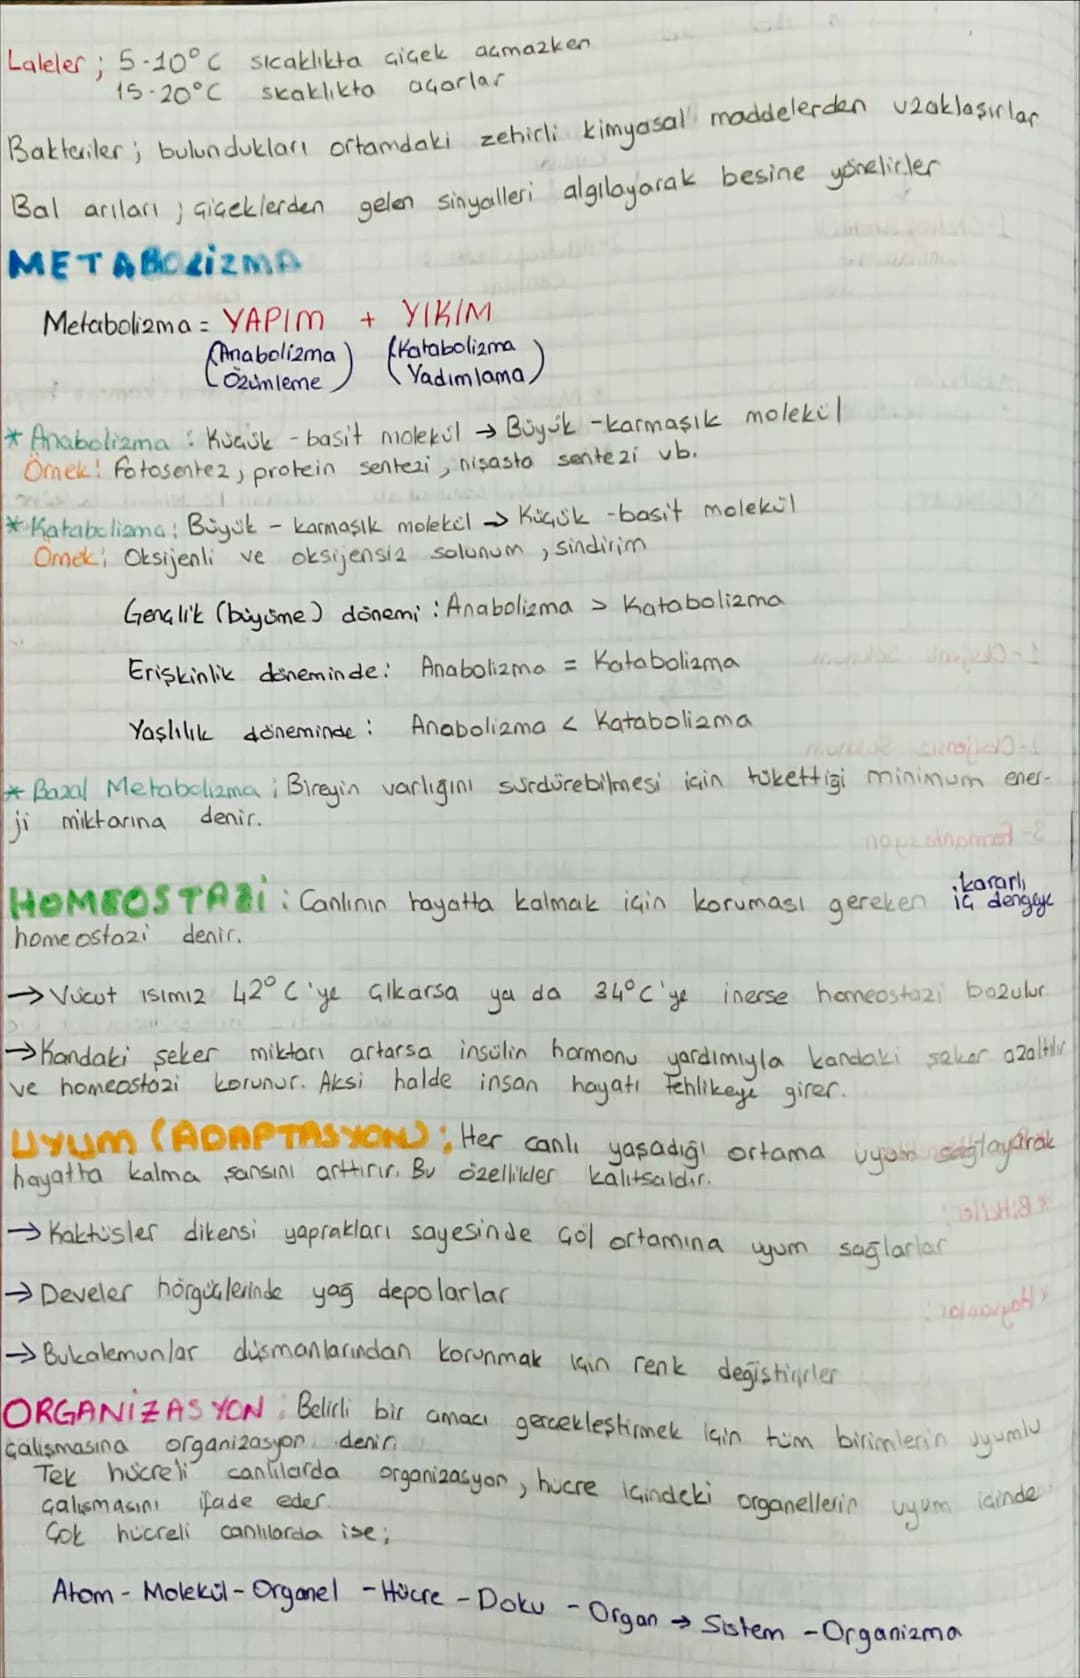 Laleler ; 5-10°C sıcaklıkta çiçek açmazken
15-20°C sıcaklıkta açarlar
Bakteriler ; bulundukları ortamdaki zehirli kimyasal maddelerden uzaklaşırlar
Bal arıları ; çiçeklerden gelen sinyalleri algılayarak besine yönelirler
METABOLİZMA
Metabolizma = YAPIM + YIKIM
(Anabolizma Özümleme) (Katabolizma Yadımlama)
* Anabolizma : Küçük - basit molekül → Büyük - karmaşık molekül
Örnek: Fotosentez, protein sentezi, nişasta sentezi vb.
* Katabolizma : Büyük - karmaşık molekül → Küçük - basit molekül
Örnek: Oksijenli ve oksijensiz solunum, sindirim
Gençlik (büyüme) dönemi : Anabolizma > Katabolizma
Erişkinlik döneminde: Anabolizma = Katabolizma
Yaşlılık döneminde : Anabolizma < Katabolizma
* Bazal Metabolizma ; Bireyin varlığını sürdürebilmesi için tükettiği minimum ener-
ji miktarına denir.
HOMEOSTAZİ : Canlının hayatta kalmak için koruması gereken kararlı iç dengeye
homeostazi denir.
→ Vücut ısımız 42°C'ye çıkarsa ya da 34°C'ye inerse homeostazi bozulur
→ Kandaki şeker miktarı artarsa insülin hormonu yardımıyla kandaki şeker azaltılır
ve homeostazi korunur. Aksi halde insan hayatı tehlikeye girer.
UYUM (ADAPTASYON) ; Her canlı yaşadığı ortama uyum sağlayarak
hayatta kalma şansını arttırır. Bu özellikler kalıtsaldır.
→ Kaktüsler dikensi yaprakları sayesinde çöl ortamına uyum sağlarlar
→ Develer hörgüçlerinde yağ depolarlar
→ Bukalemunlar düşmanlarından korunmak için renk değiştirirler
ORGANİZASYON : Belirli bir amacı gerçekleştirmek için tüm birimlerin uyumlu
çalışmasına organizasyon denir.
Tek hücreli canlılarda organizasyon, hücre içindeki organellerin uyum içinde
çalışmasını ifade eder.
Çok hücreli canlılarda ise ;
Atom - Molekül - Organel - Hücre - Doku - Organ → Sistem - Organizma